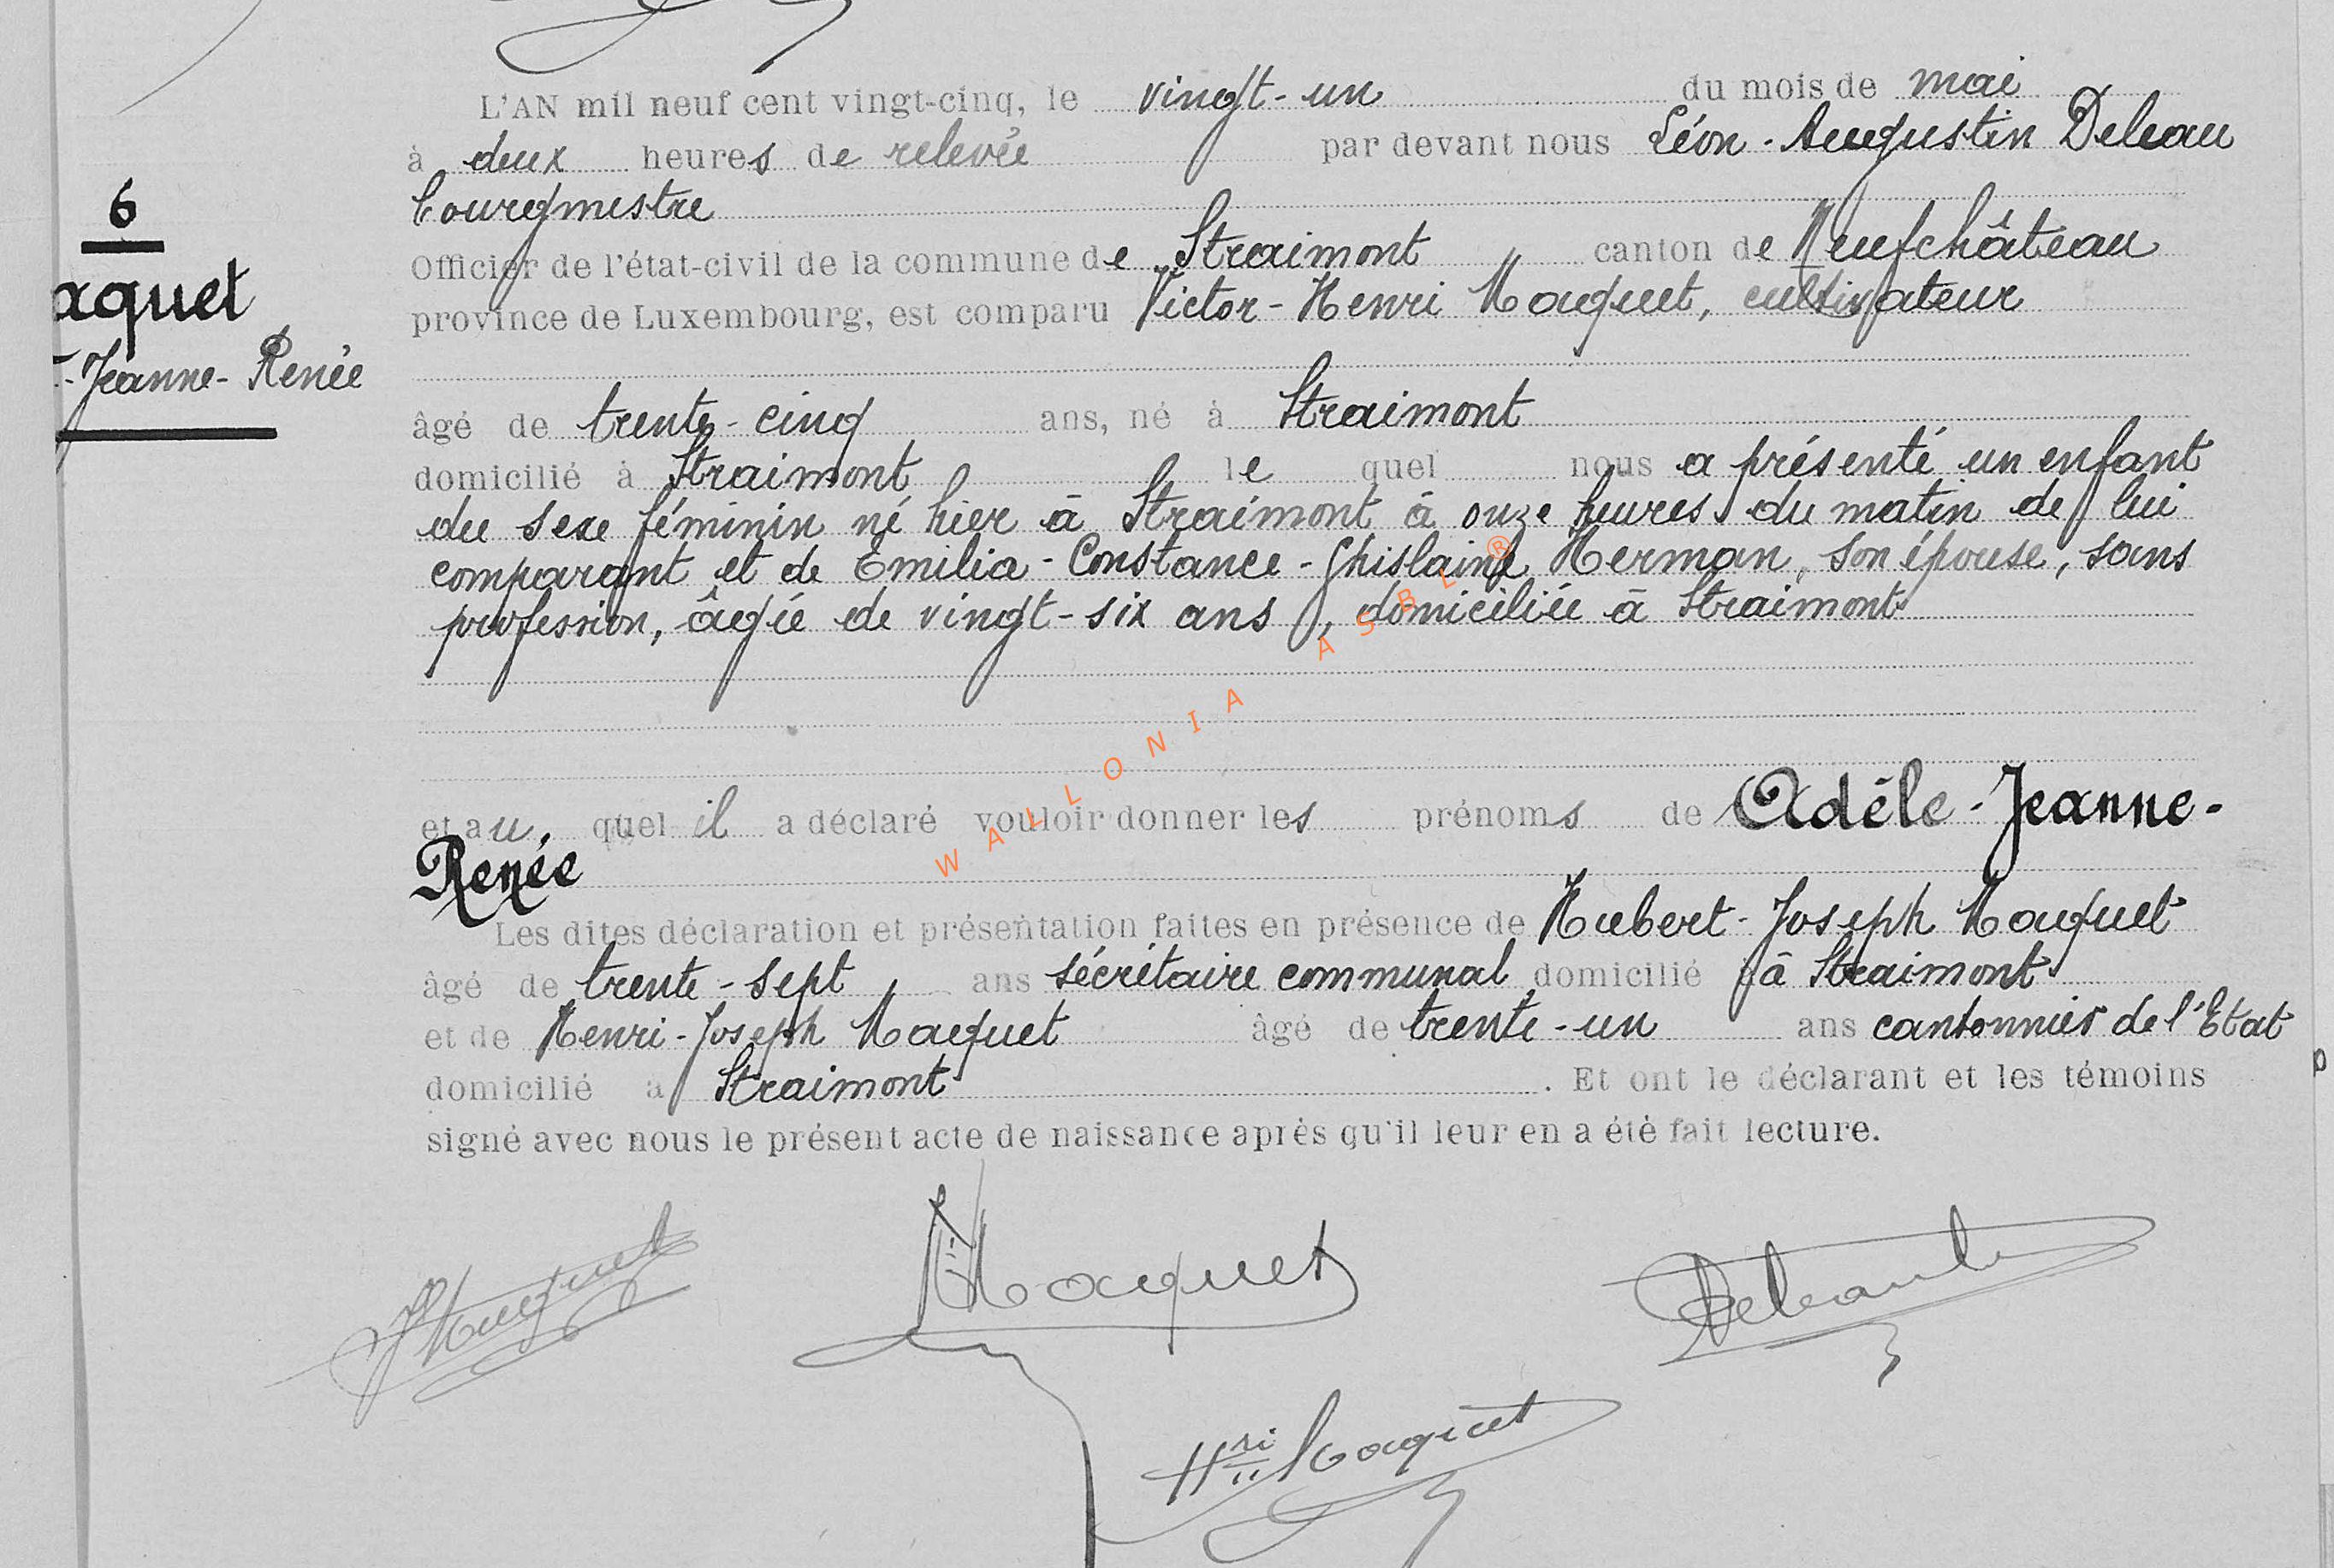 L'AN mil neuf cent vingt-cinq, le vingt-un du mois de mai
à deux heures de relevée par devant nous Léon-Augustin Deleau
bourgmestre
6
Officier de l'état-civil de la commune de Straimont canton de Neufchâteau
aquet
province de Luxembourg, est comparu Victor-Henri Maquet, cultivateur
-Jeanne-Renée
âgé de trente-cinq ans, né à Straimont
domicilié à Straimont le quel nous a présenté un enfant
du sexe féminin né hier à Straimont à onze heures du matin de lui
comparant et de Emilia-Constance-Ghislaine Herman, son épouse, sans
profession, âgée de vingt-six ans, domiciliée à Straimont
WALLONIA ASBL ®
et au quel il a déclaré vouloir donner les prénoms de Adèle-Jeanne-
Renée
Les dites déclaration et présentation faites en présence de Hubert-Joseph Maquet
âgé de trente-sept ans sécrétaire communal domicilié à Straimont
et de Henri-Joseph Maquet âgé de trente-un ans cantonnier de l'Etat
domicilié à Straimont. Et ont le déclarant et les témoins
signé avec nous le présent acte de naissance après qu'il leur en a été fait lecture.
Maquet
Maquet
Hri Maquet